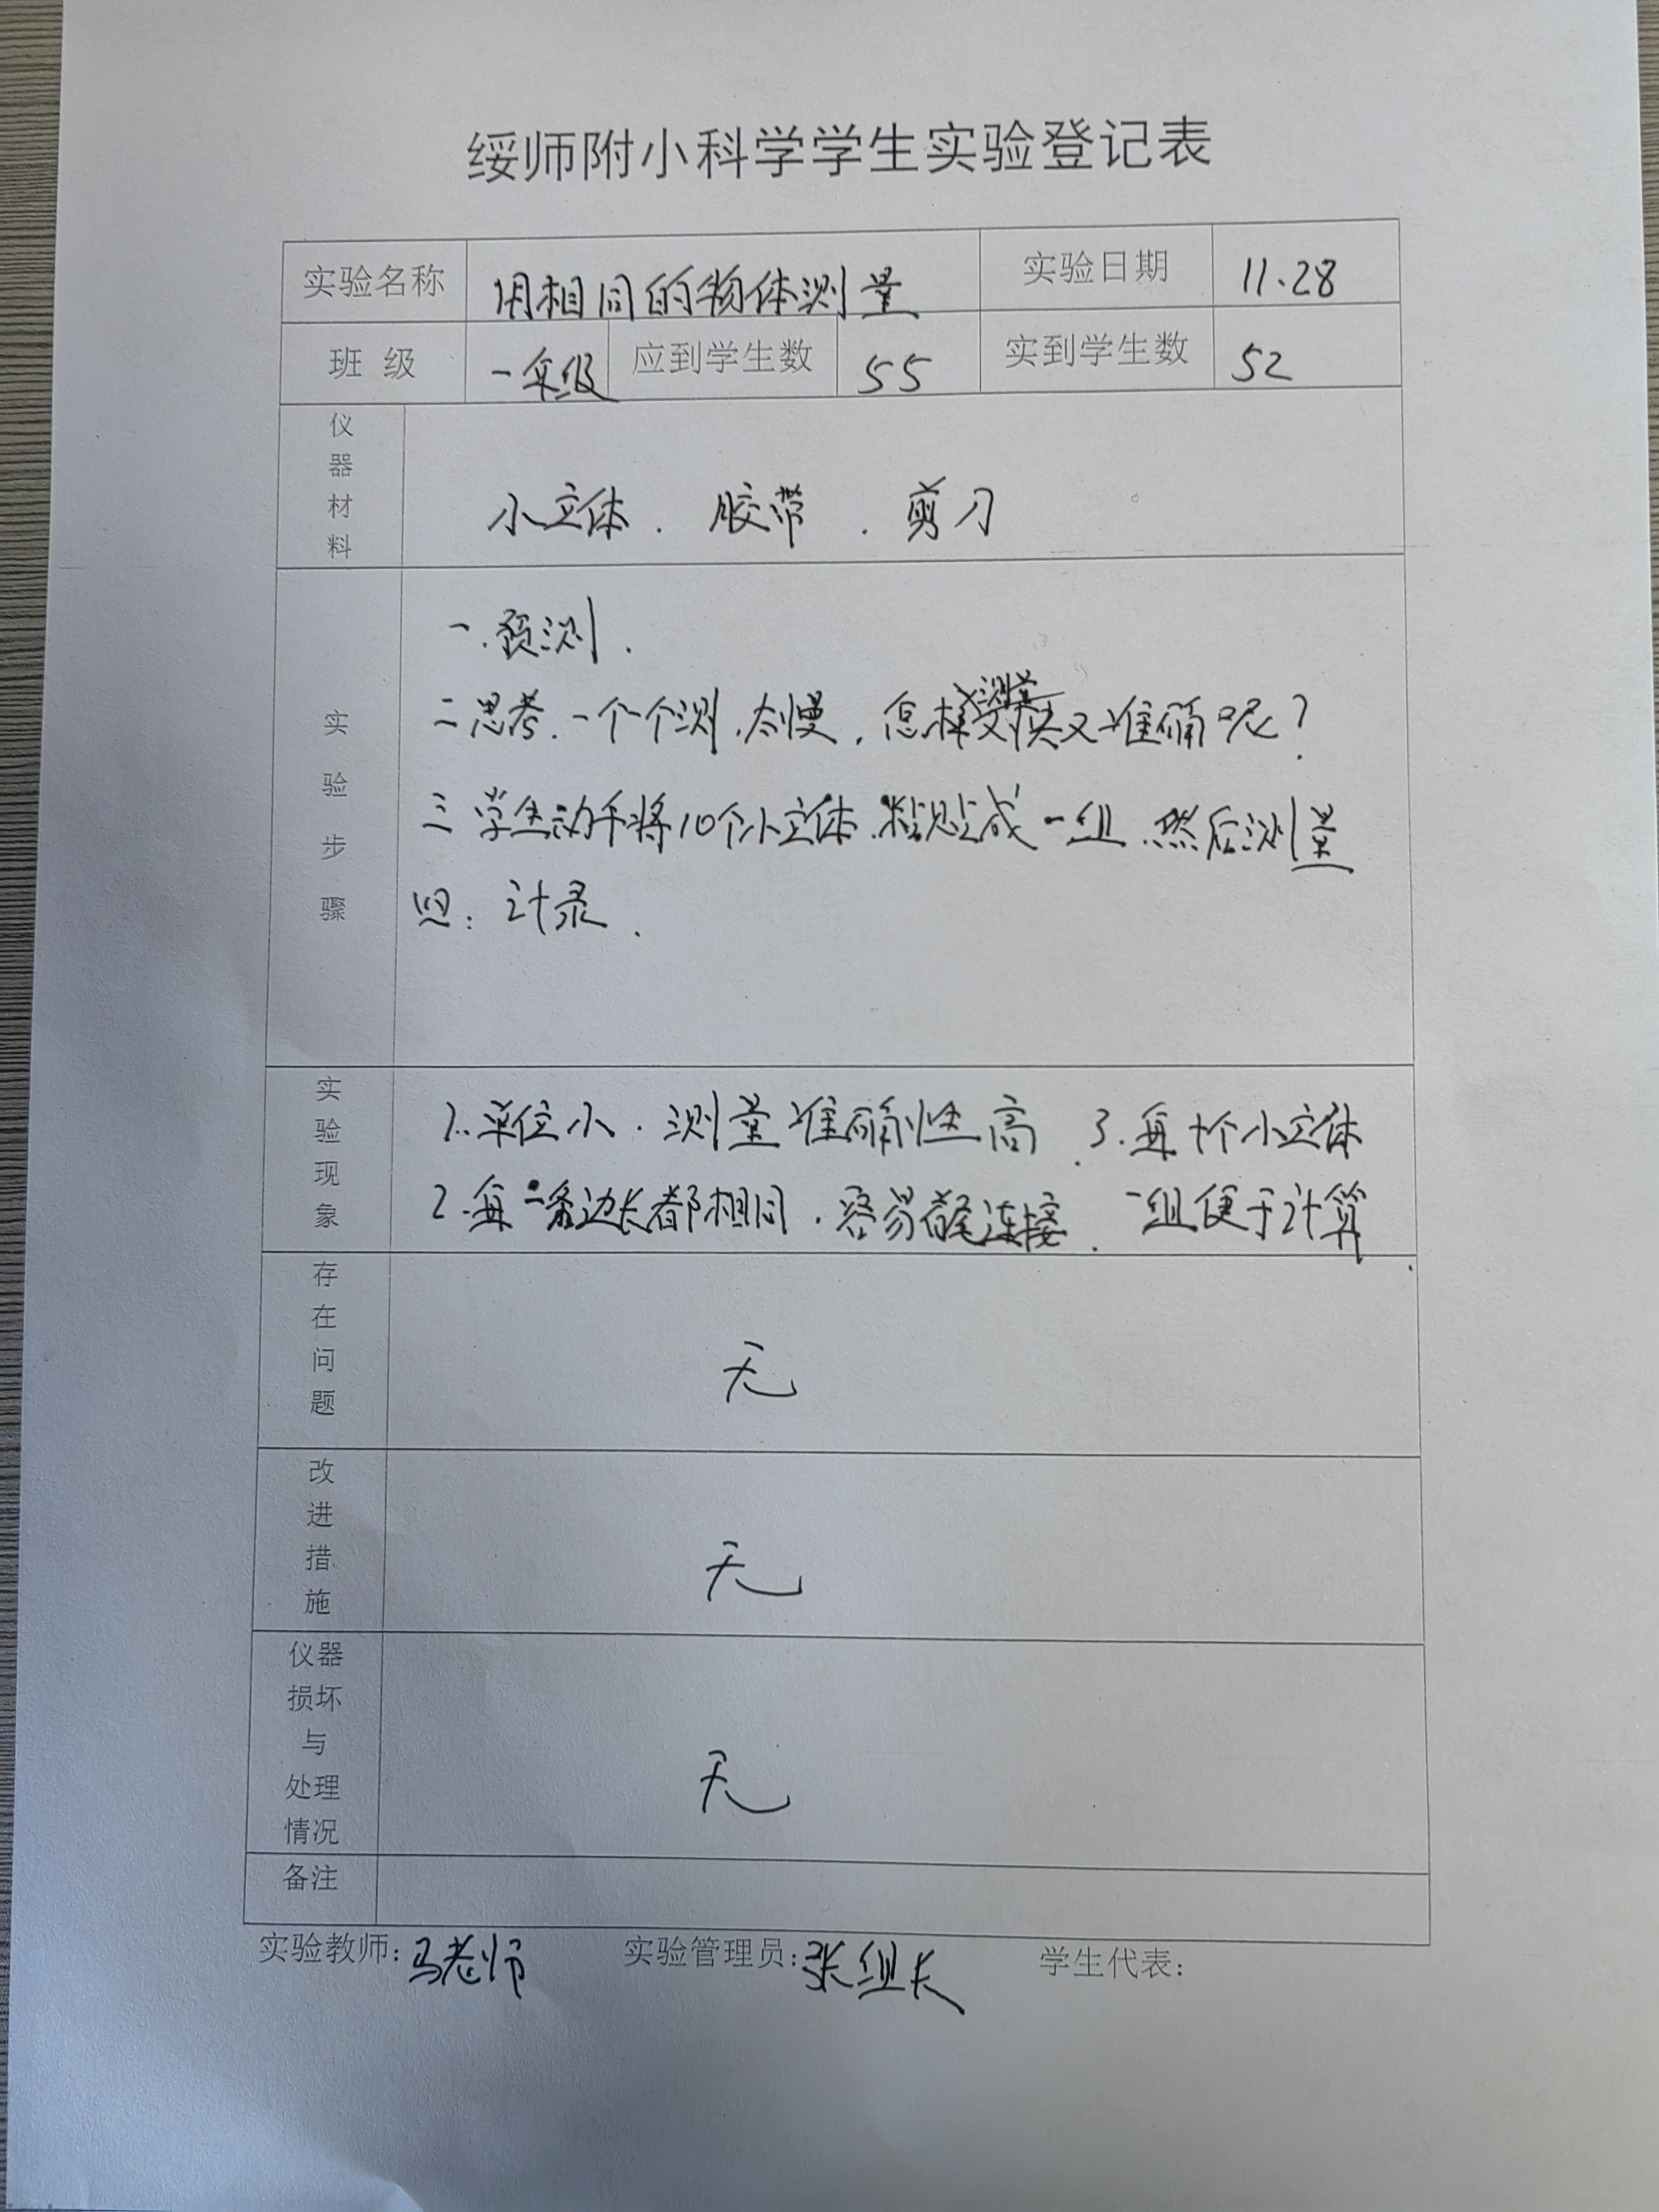 绥师附小科学学生实验登记表
实验名称 用相同的物体测量 实验日期 11.28
班 级 一年级 应到学生数 55 实到学生数 52
仪器材料 小立体. 胶带. 剪刀
实验步骤
一.预测.
二思考.一个一个测,太慢,怎样测量又快又准确呢?
三 学生动手将10个小立体.粘贴成一组.然后测量
四:计录.
实验现象
1.单位小.测量准确性高.
2.每一条边长都相同.容易首尾连接.
3.每十个小立体
一组便于计算.
存在问题 无
改进措施 无
仪器损坏与处理情况 无
备注
实验教师:马老师 实验管理员:张组长 学生代表: